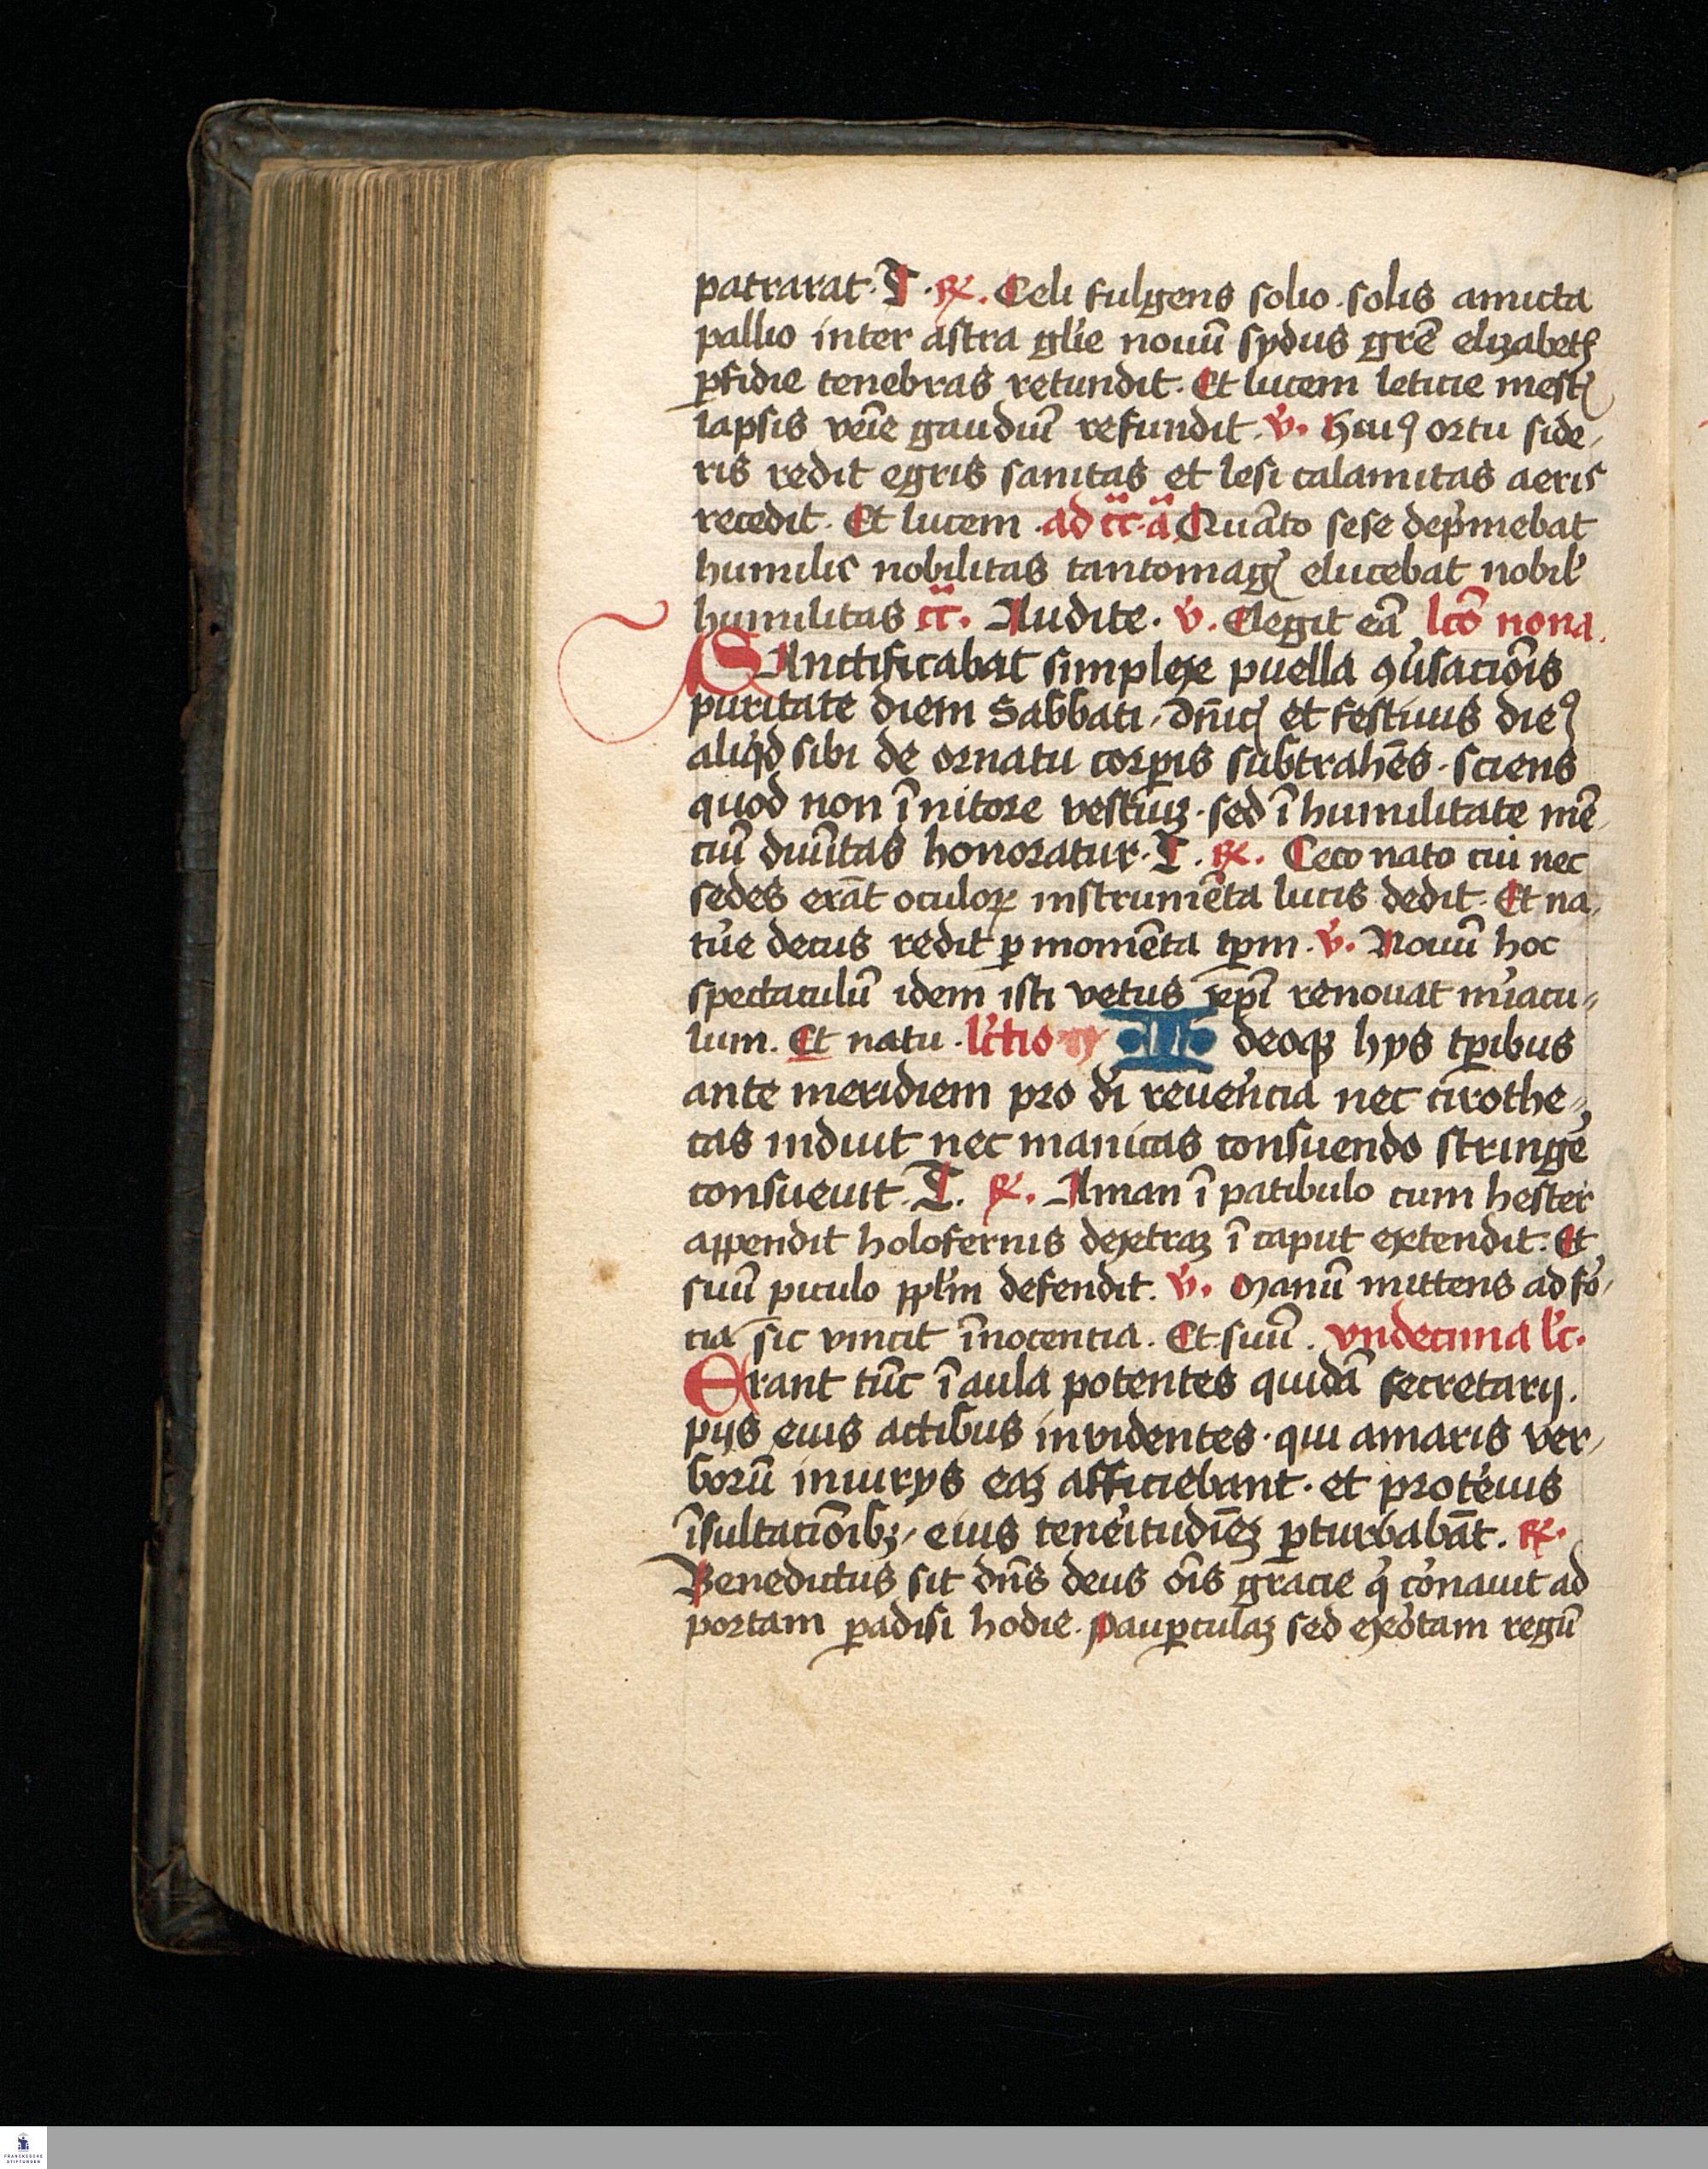 patrarat. T. ℟. Celi fulgens solio. solis amicta
pallio inter astra gl̄ie nouū sydus gr̄e elizabeth
ꝑfidie tenebras retundit. Et lucem leticie mestꝭ
lapsis ven̄ie gaudiū refundit. v̓. Huiꝰ ortu side-
ris redit egris sanitas et lesi calamitas aeris
recedit. Et lucem. ad cc̄. a Quāto sese dep̓mebat
humilis nobilitas tantomagꝭ elucebat nobil'
humilitas cc̄. Audite. v̓. Elegit eā lcō nona.
SAnctificabat simplex puella ꝯu̓saciōis
puritate diem Sabbati, dn̄icꝭ et festiuis dieꝰ
aliq̓d sibi de ornatu corꝑis subtrahēs. sciens
quod non ī nitore vestiuꝫ. sed ī humilitate mē-
ciū diuīitas honoratur. T. ℟. Ceco nato cui nec
sedes erāt oculoꝝ instrumēta lucis dedit. Et na-
tu̓e decus redit ꝑ momēta tꝑm. v̓. Nouū hoc
spectaculū idem isti vetus xp̄i renouat mi̓acu-
lum. Et natu. lc̓tio
Ideoqꝫ hys tꝑibus
ante meridiem pro di̓ reuen̓cia nec cirothe-
cas induit nec manicas consuendo stringe̓
consueuit. T. ℟. Aman ī patibulo cum hester
appendit holofernis dextraꝫ ī caput extendit. Et
suū piculo pplm̄ defendit. v̓. Manū mittens ad fo̓-
cia sic vincit īnocencia. Et suū. vndecima lc̓.
Erant tūc ī aula potentes quidā secretarij.
pijs eius actibus invidentes. qui amaris ver-
borū iniurys eaꝫ afficiebant. et prote̓uis
īsultaciōibꝫ, eius tene̓itudīeꝫ ꝑturbabāt. ℟.
Benedictus sit dn̄s deus oīs gracie q̓ co̓nauit ad
portam ꝑadisi hodie. Pauꝑculaꝫ sed exo̓tam regū
FRANCKESCHE
STIFTUNGEN